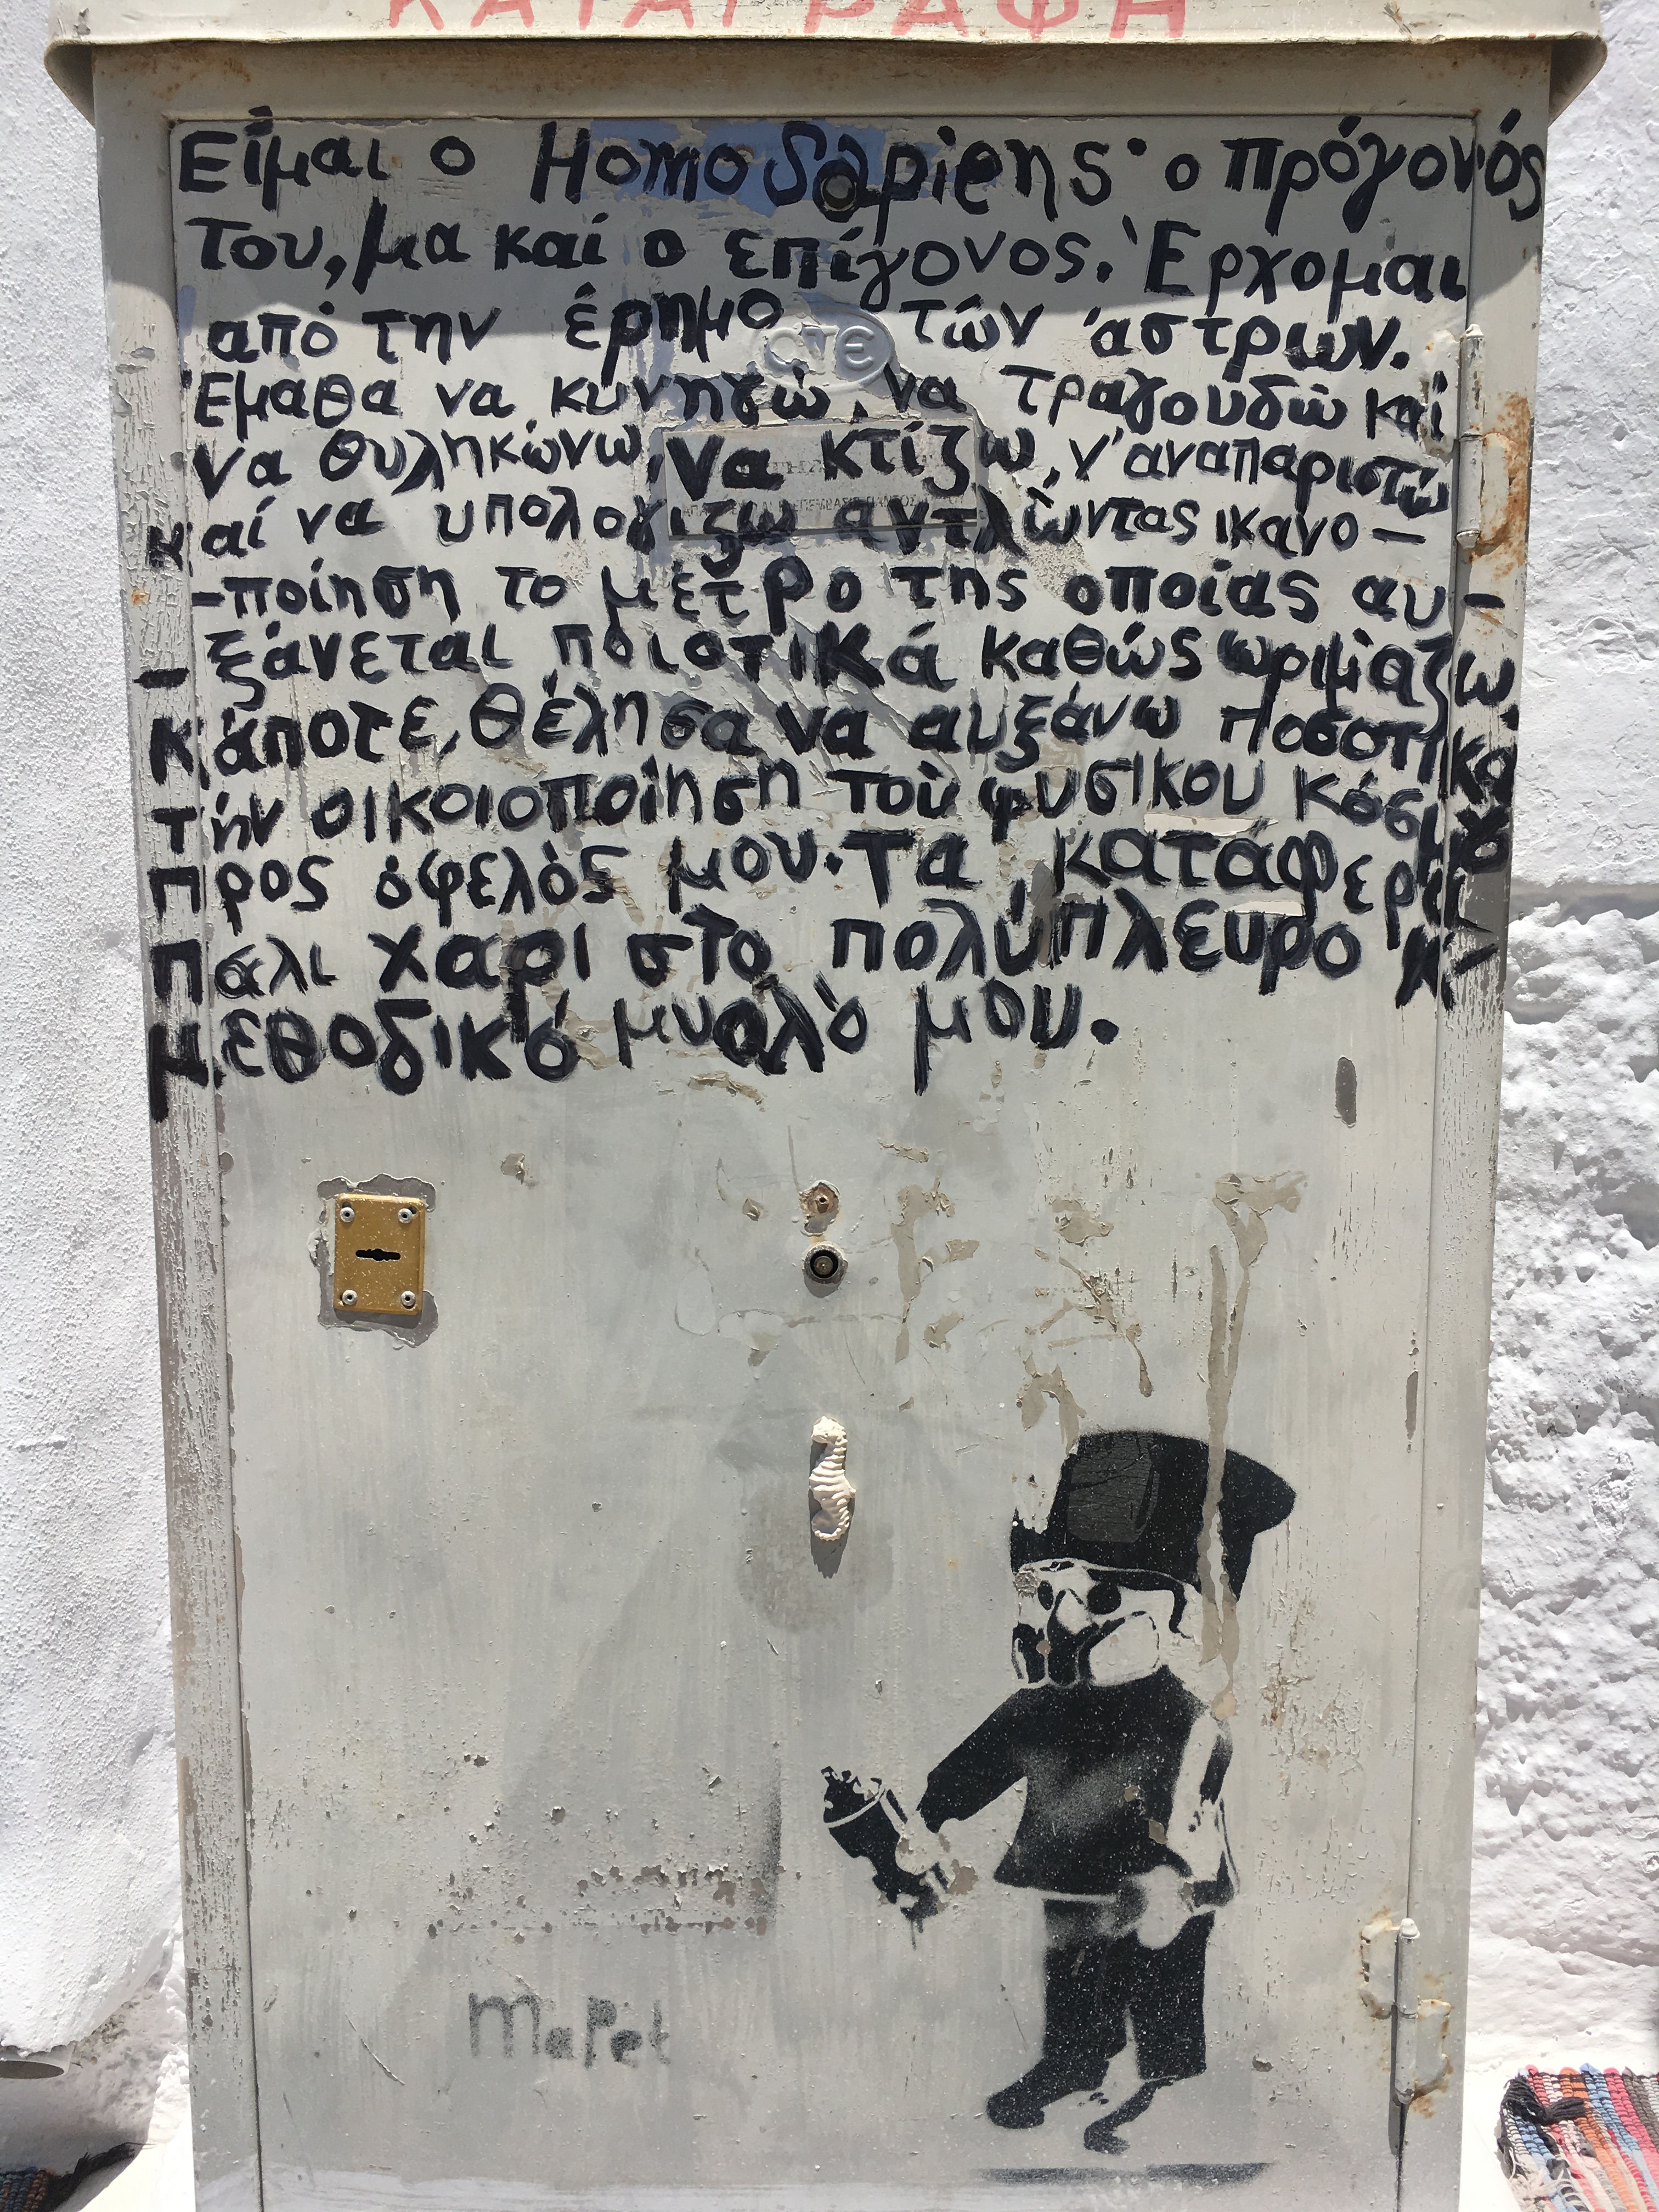 ΚΑΤΑΓΡΑΦΗ
Είμαι ο Homo Sapiens· ο πρόγονός
του, μα καί ο επίγονος. Έρχομαι
από την έρημο τών άστρων.
Έμαθα να κυνηγώ, να τραγουδώ καί
να θυληκώνω, να κτίζω, ν' αναπαριστώ
καί να υπολογιζω αντλώντας ικανο-
-ποίηση το μέτρο της οποίας αυ-
-ξάνεται ποιοτικά καθώς ωριμάζω.
κάποτε, θέλησα να αυξάνω ποσοτικά
τήν οικοιοποίηση τού φυσικου κόσμου
προς όφελός μου. Τα κατάφερα
πάλι χαρι στο πολύπλευρο κ'
μεθοδικό μυαλό μου.
ΟΤΕ
maPet